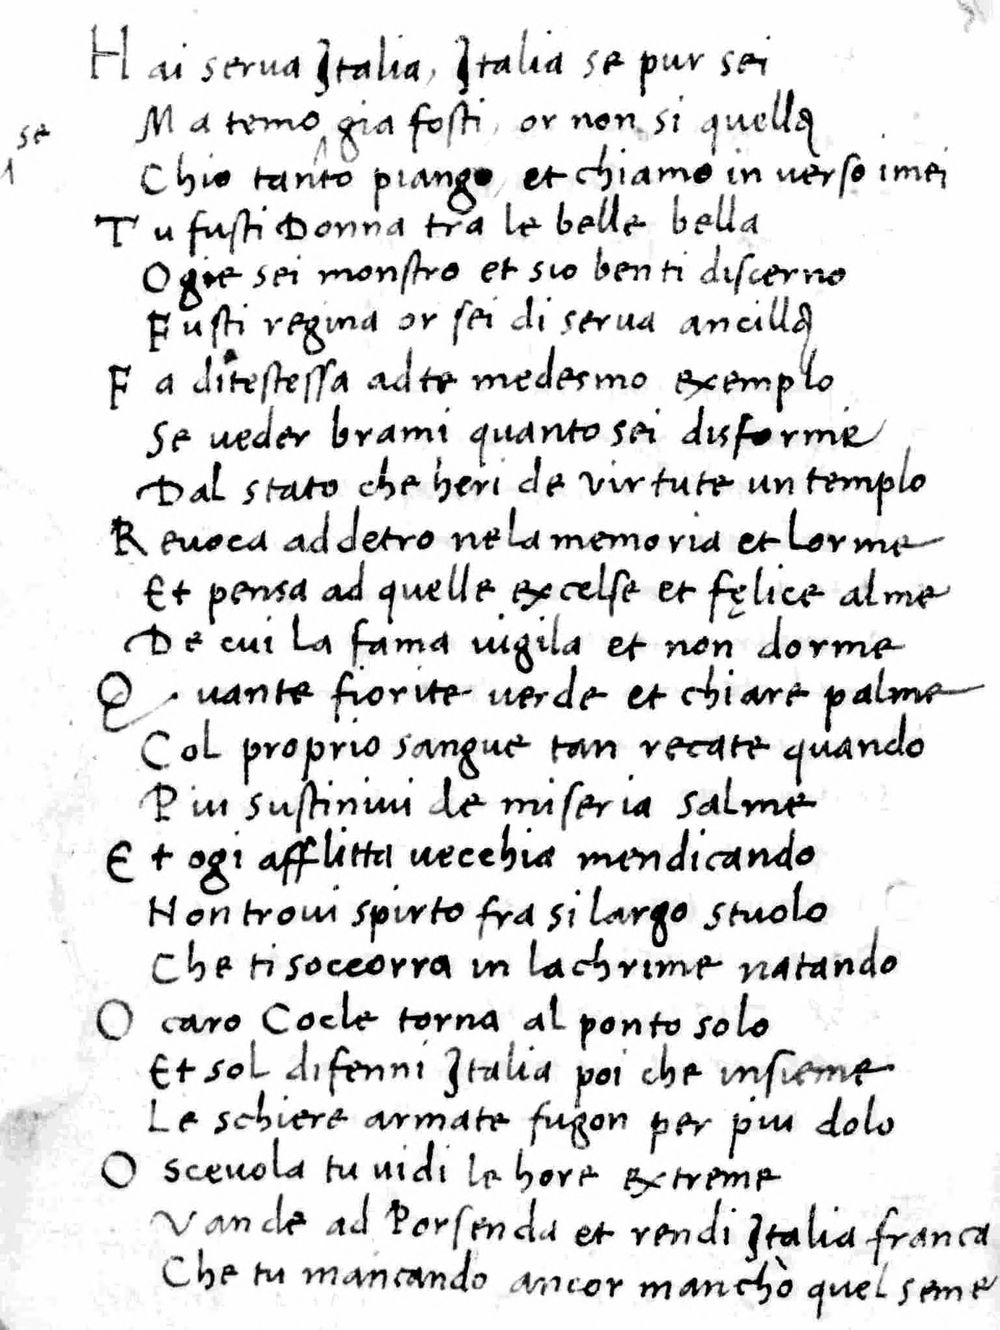 Hai serua Italia, Italia se pur sei
Ma temo se gia fosti, or non si quella
Chio tanto piango, et chiamo in uerso i mei
Tu fusti Donna tra le belle bella
Ogie sei monstro et sio ben ti discerno
Fusti regina or sei di serua ancilla
Fa di te stessa ad te medesmo exemplo
Se ueder brami quanto sei disforme
Dal stato che heri de virtute un templo
Reuoca ad detro ne la memoria et lorme
Et pensa ad quelle excelse et fęlice alme
De cui la fama uigila et non dorme
Quante fiorite uerde et chiare palme
Col proprio sangue tan recate quando
Piu sustiniui de miseria salme
Et ogi afflitta uecchia mendicando
Non troui spirto fra si largo stuolo
Che ti soccorra in lachrime natando
O caro Cocle torna al ponto solo
Et sol difenni Italia poi che insieme
Le schiere armate fugon per piu dolo
O sceuola tu uidi le hore extreme
Vande ad Porsenda et rendi Italia franca
Che tu mancando ancor manchò quel seme